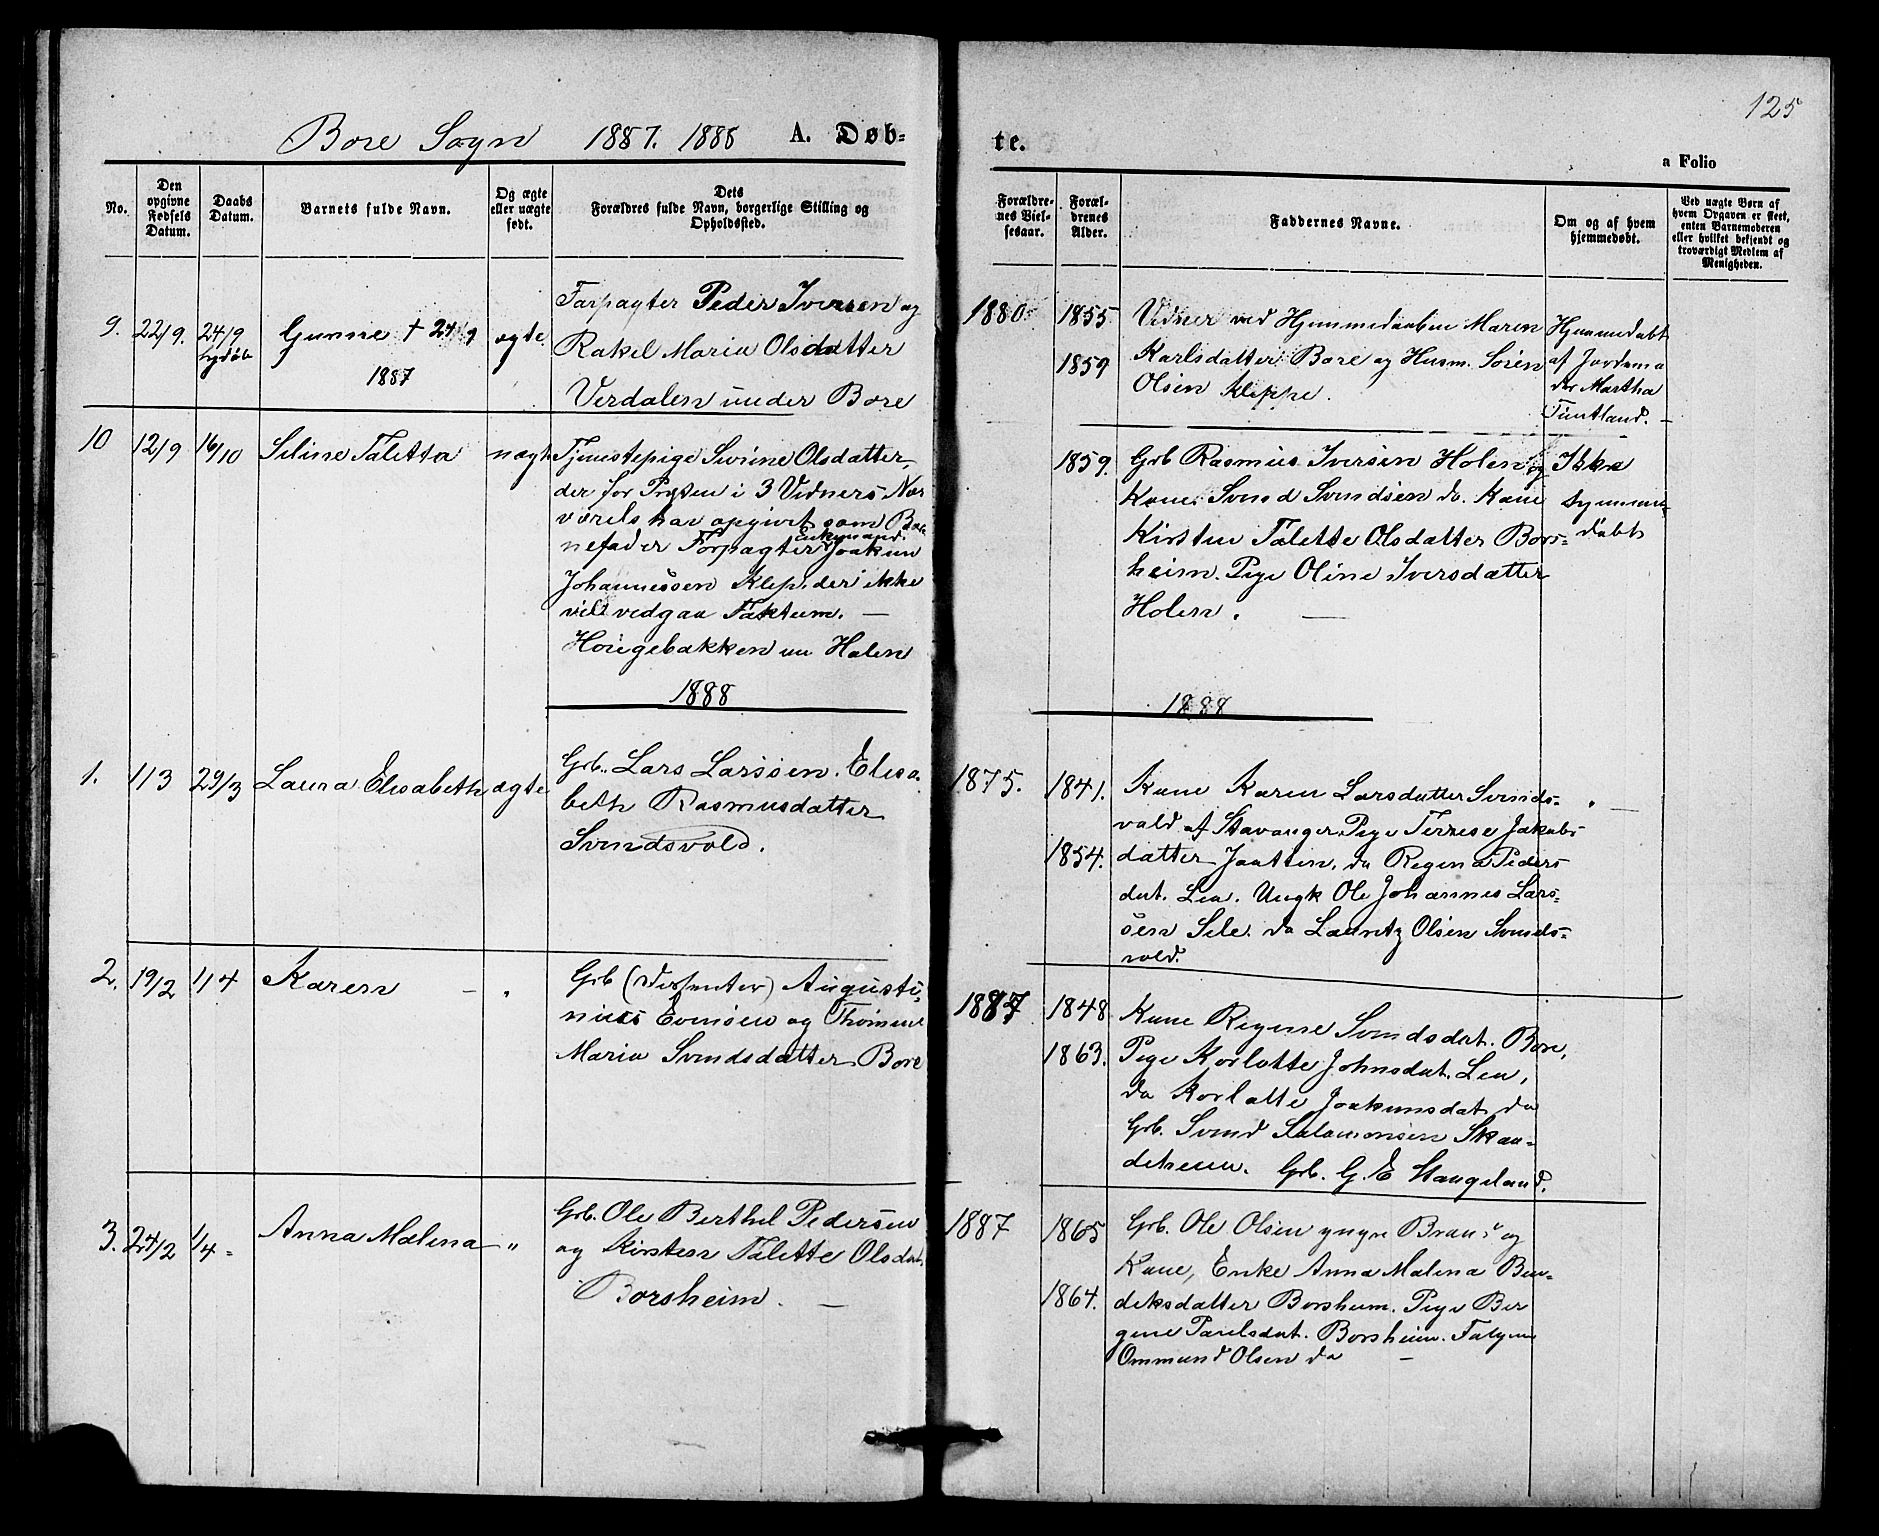 125
Bore Sogn 1887. 1888 A. Døb=
te.
a Folio
No.
Den opgivne Fødsels Datum.
Daabs Datum.
Barnets fulde Navn.
Og ægte eller uægte født.
Dets
Forældres fulde Navn, borgerlige Stilling og
Opholdssted.
Forældre-
nes Viel-
sesaar.
Foræl-
drenes
Alder.
Faddernes Navne.
Om og af hvem
hjemmedøbt.
Ved uægte Børn af
hvem Opgaven er skeet,
enten Barnemoderen
eller hvilket bekjendt og
troværdigt Medlem af
Menigheden.
9. 22/9. 24/9 Gunne + 24/9 ægte
1887
Farpagter Peder Iversen og
Rakel Maria Olsdatter
Verdalen under Bore
1880 1855
1859
Vidner ved Hjemmedaaben Maren
Karlsdatter Bore og Husm. Sören
Olsen Kleppe.
Hjemmedøbt
af Jordemo
der Martha
Tuntland. -
10 12/9 16/10 Seline Taletta uægt.
Tjenestepige Surine Olsdatter,
der for Præsten i 3 Vidners Nær
værels har opgivet som Bar
nefader Forpagter Enkemand Joakim
Johannessen Klep. der ikke
vill vedgaa Faktum. -
Höigebakken un Holen
1859.
Grb Rasmus Iversen Holen og
Kone. Svend Svendsen do. Kone
Kirsten Talette Olsdatter Bors=
heim. Pige Oline Iversdatter
Holen. -
Ikke
hjemme=
døbt
1888
1888
1. 1/3 29/3 Laura Elisabeth ægte
Grb. Lars Larssen. Elisa
beth Rasmusdatter
Svindsvold.
1875. 1841.
1854.
Kone Karen Larsdatter Svinds=
vald af Stavanger. Pige Terrese Jakobs
datter Jaatten, do Regina Peders
dat. Lea. Ungk Ole Johannes Lars=
sen Sele. do Lauritz Olsen Svinds=
vold.
2. 19/2 1/4 Karen - "
Grb (Dissenter) Augusti=
nius Evensen og Thomine
Maria Svendsdatter Bore
1887 1848
1863.
Kone Regine Svendsdat. Bore,
Pige Korlotte Johnsdat. Lea,
do Korlotte Joakimsdat. do
Grb. Svend Salamonsen Skan=
deheim. Grb. G. E Stangeland.
3. 24/2 1/4 - Anna Malena "
Grb. Ole Berthel Pedersen
og Kirsten Talette Olsdat.
Borsheim. -
1887 1865
1864.
Grb. Ole Olsen yngre Braut og
Kone, Enke Anna Malena Ben=
deksdatter Borsheim. Pige Ber
gine Paulsdat. Borsheim.
Ommund Olsen do -